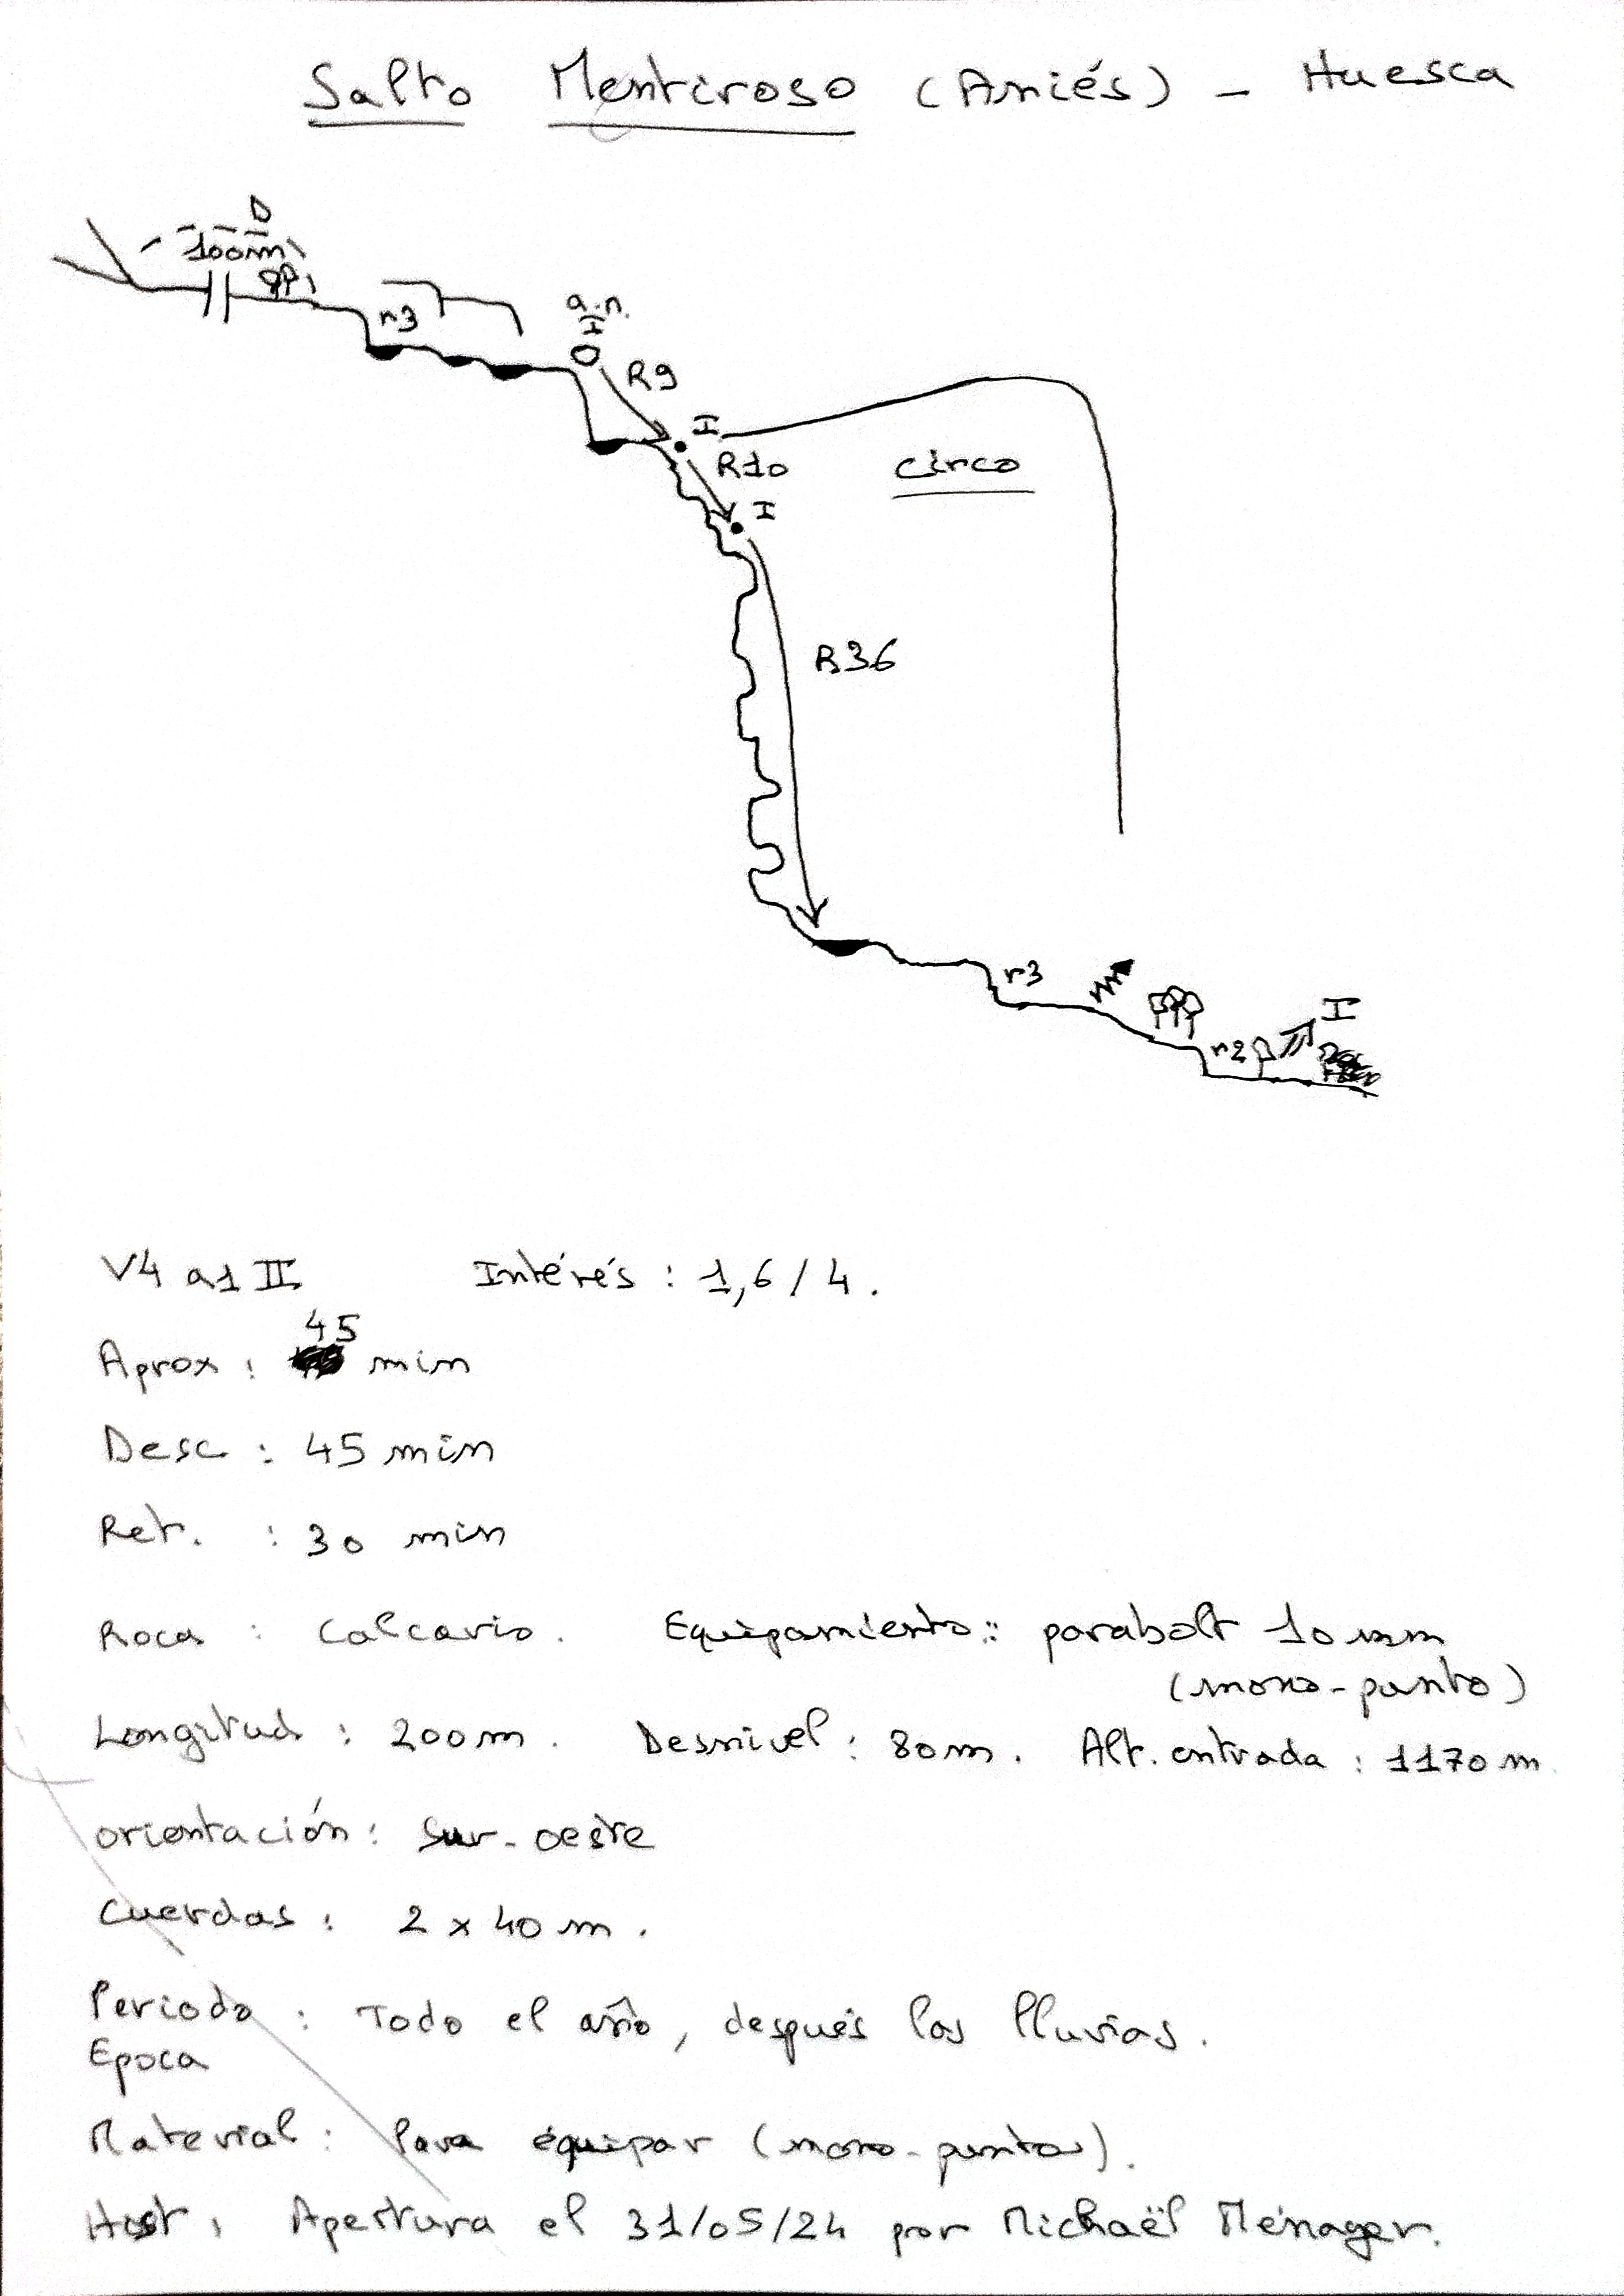 Salto Mentiroso (Aniés) - Huesca
D
100m
r3
a.n.
I
R9
I
R10
circo
I
R36
r3
I
r2
V4 a1 II Intérés : 1,6 / 4.
45
Aprox : min
Desc : 45 min
Ret. : 30 min
Roca : Calcario. Equipamiento : parabolt 10 mm
(mono-punto)
Longitud : 200m. Desnivel : 80m. Alt. entrada : 1170 m
orientación : Sur-oeste
Cuerdas : 2 x 40 m.
Periodo : Todo el año, después las lluvias.
Epoca
Material : Para équipar (mono-puntos).
Hist : Apertura el 31/05/24 por Michaël Ménager.